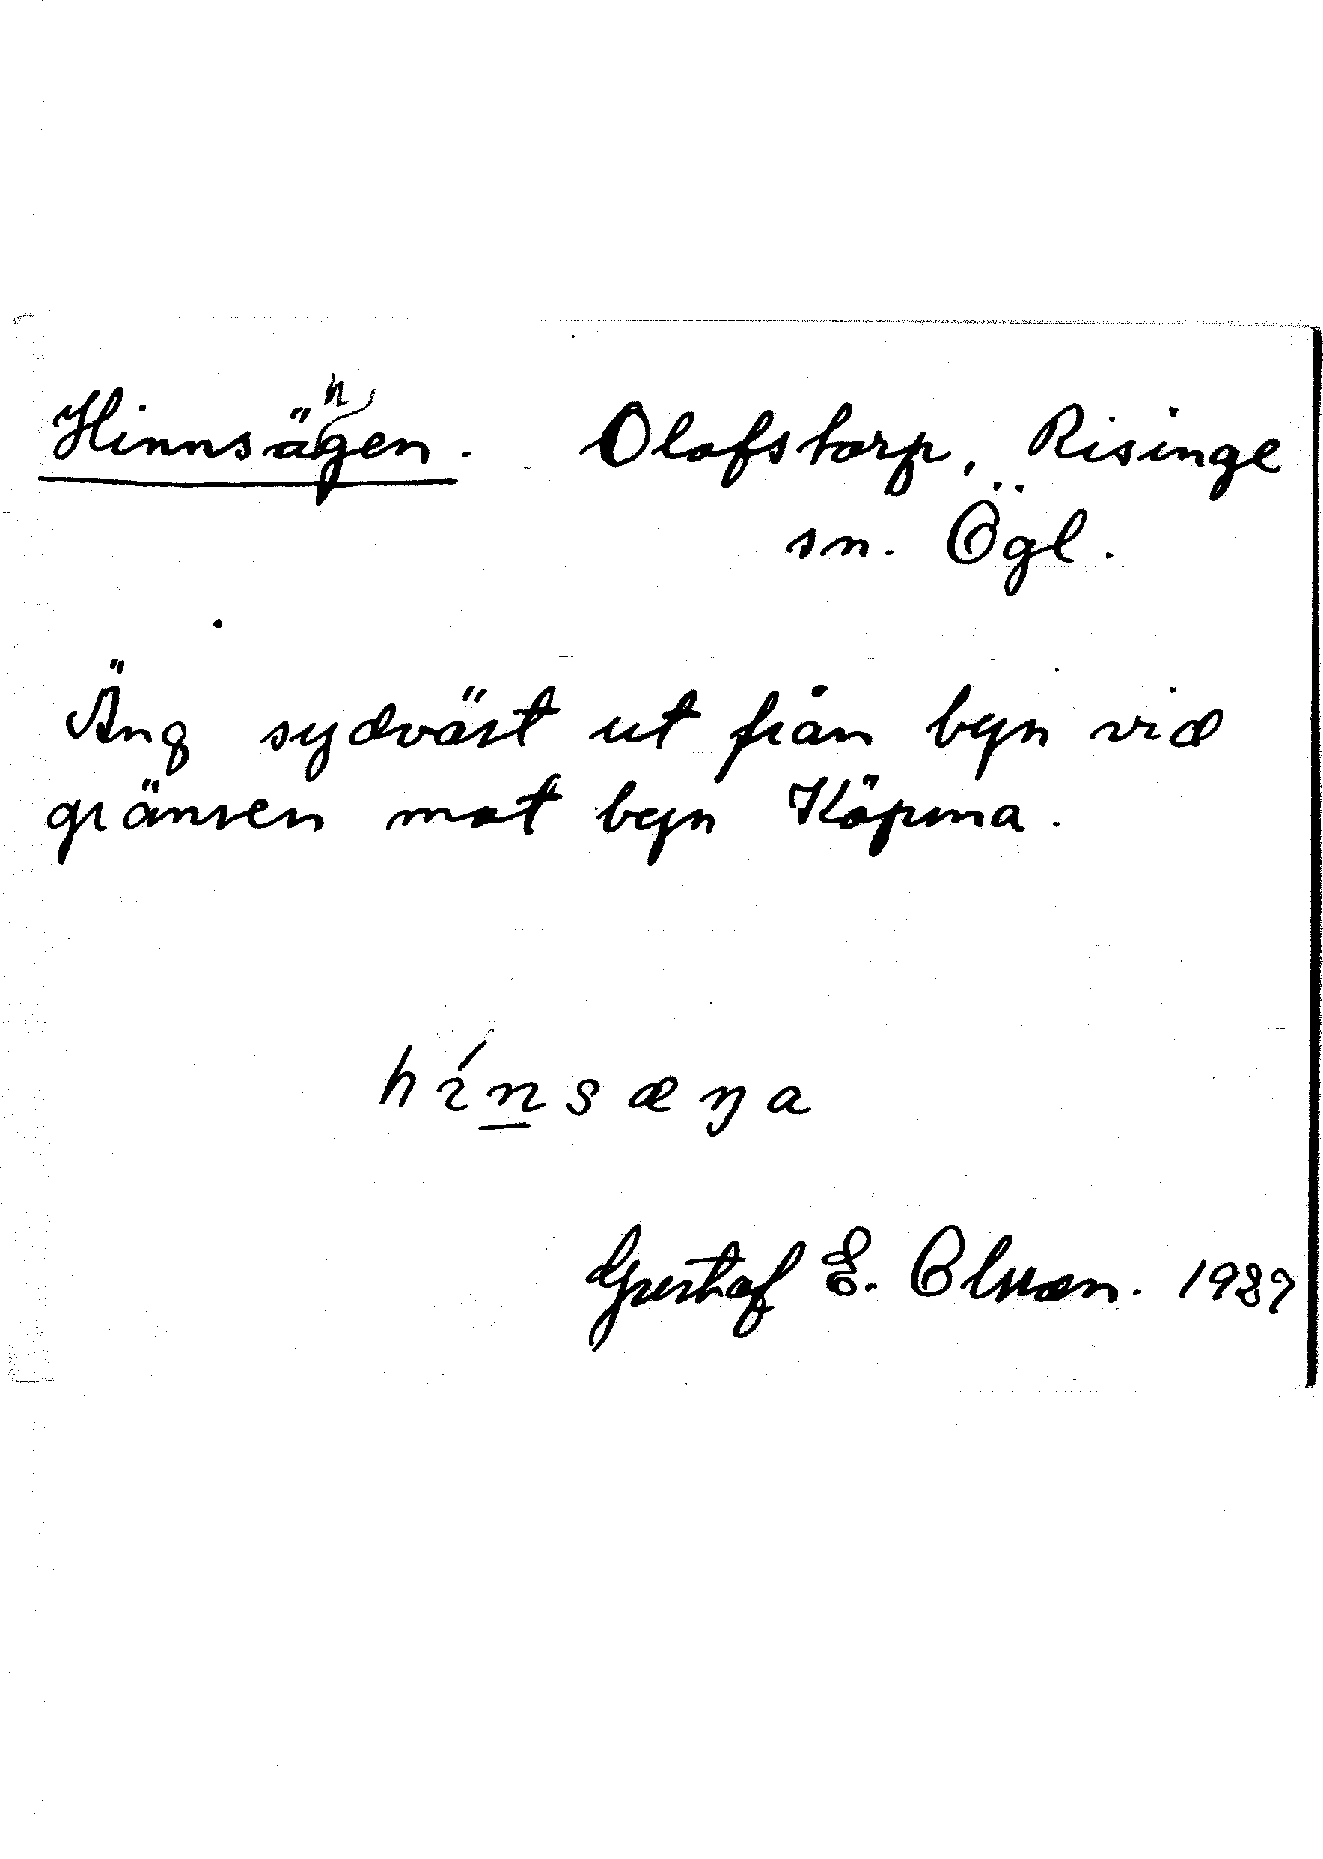 Hinnsängen. Olofstorp, Risinge
sn. Ögl.
Äng sydväst ut från byn vid
gränsen mot byn Köpma.
hínsæŋa
Gustaf E. Olsson. 1937